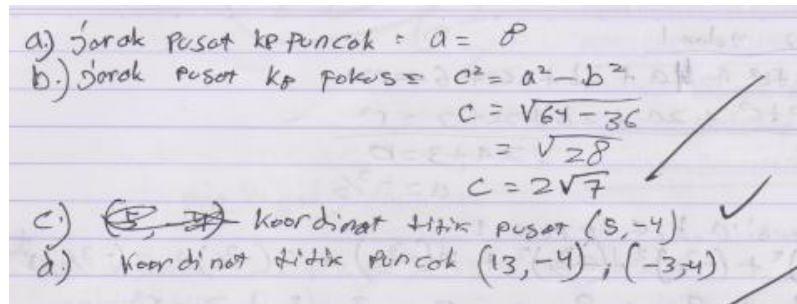 a.) Jarak pusat ke puncak = a = 8
b.) Jarak pusat ke fokus = c² = a² - b²
c = √64 - 36
= √28
c = 2√7
c.) koordinat titik pusat (5, -4)
d.) koordinat titik puncak (13, -4) ; (-3,-4)